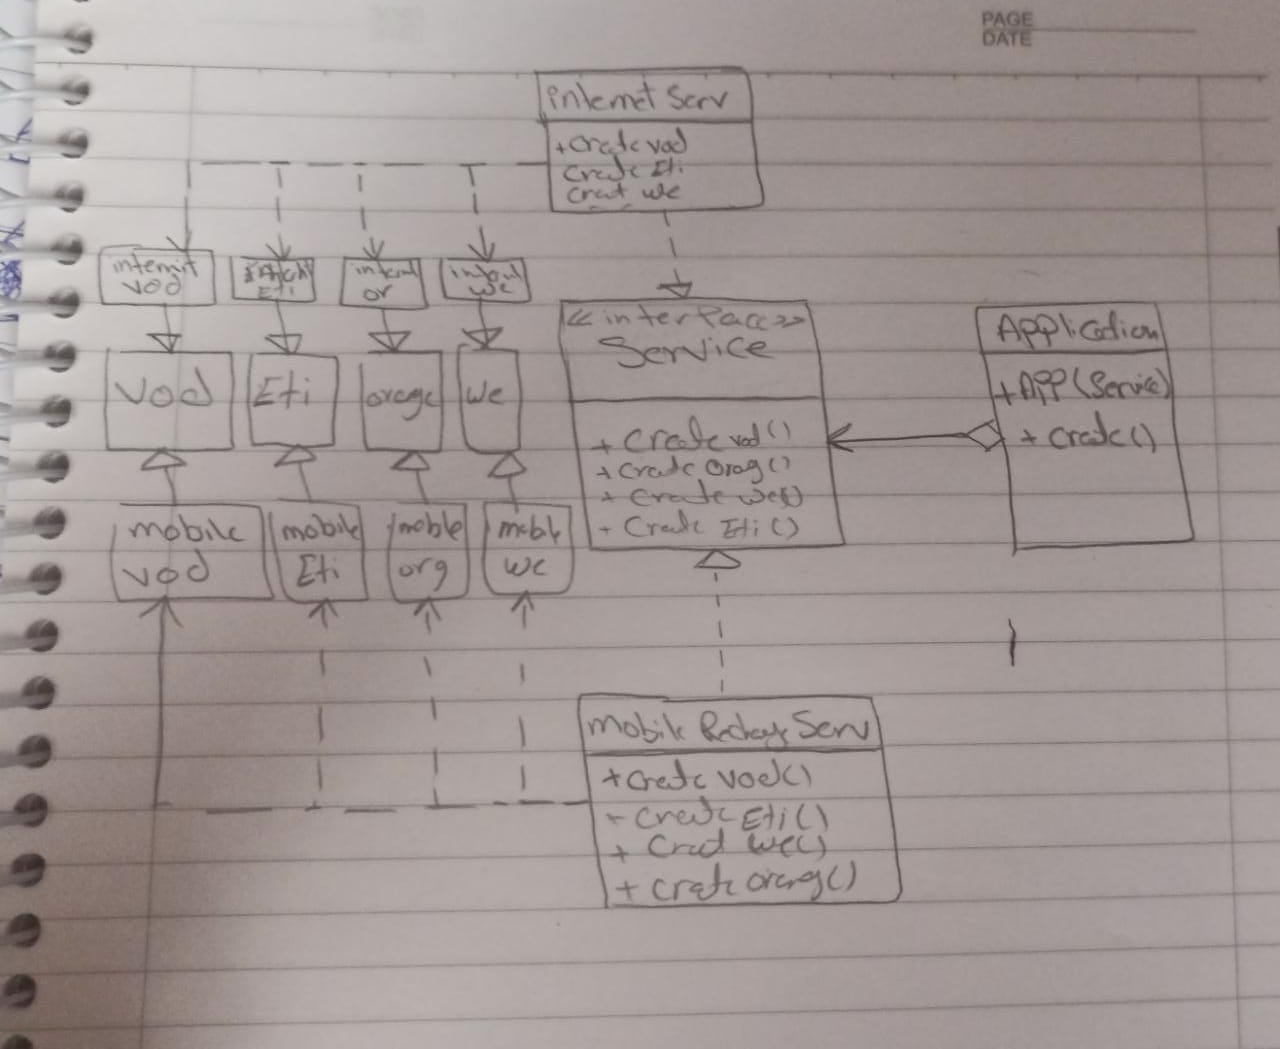 PAGE
DATE
internet Serv
+ Create vod
Create Eti
Creat we
internit
vod
Eti
or
we
Vod
Eti
orage
we
mobile
vod
mobile
Eti
moble
org
mobl
we
<<interface>>
Service
+ Create vod()
+ Crate Orag()
+ Create we()
+ Create Eti()
Application
+ APP (Service)
+ Create()
mobile Rechage Serv
+ Create Vod()
+ Create Eti()
+ Creat we()
+ Crate orang()